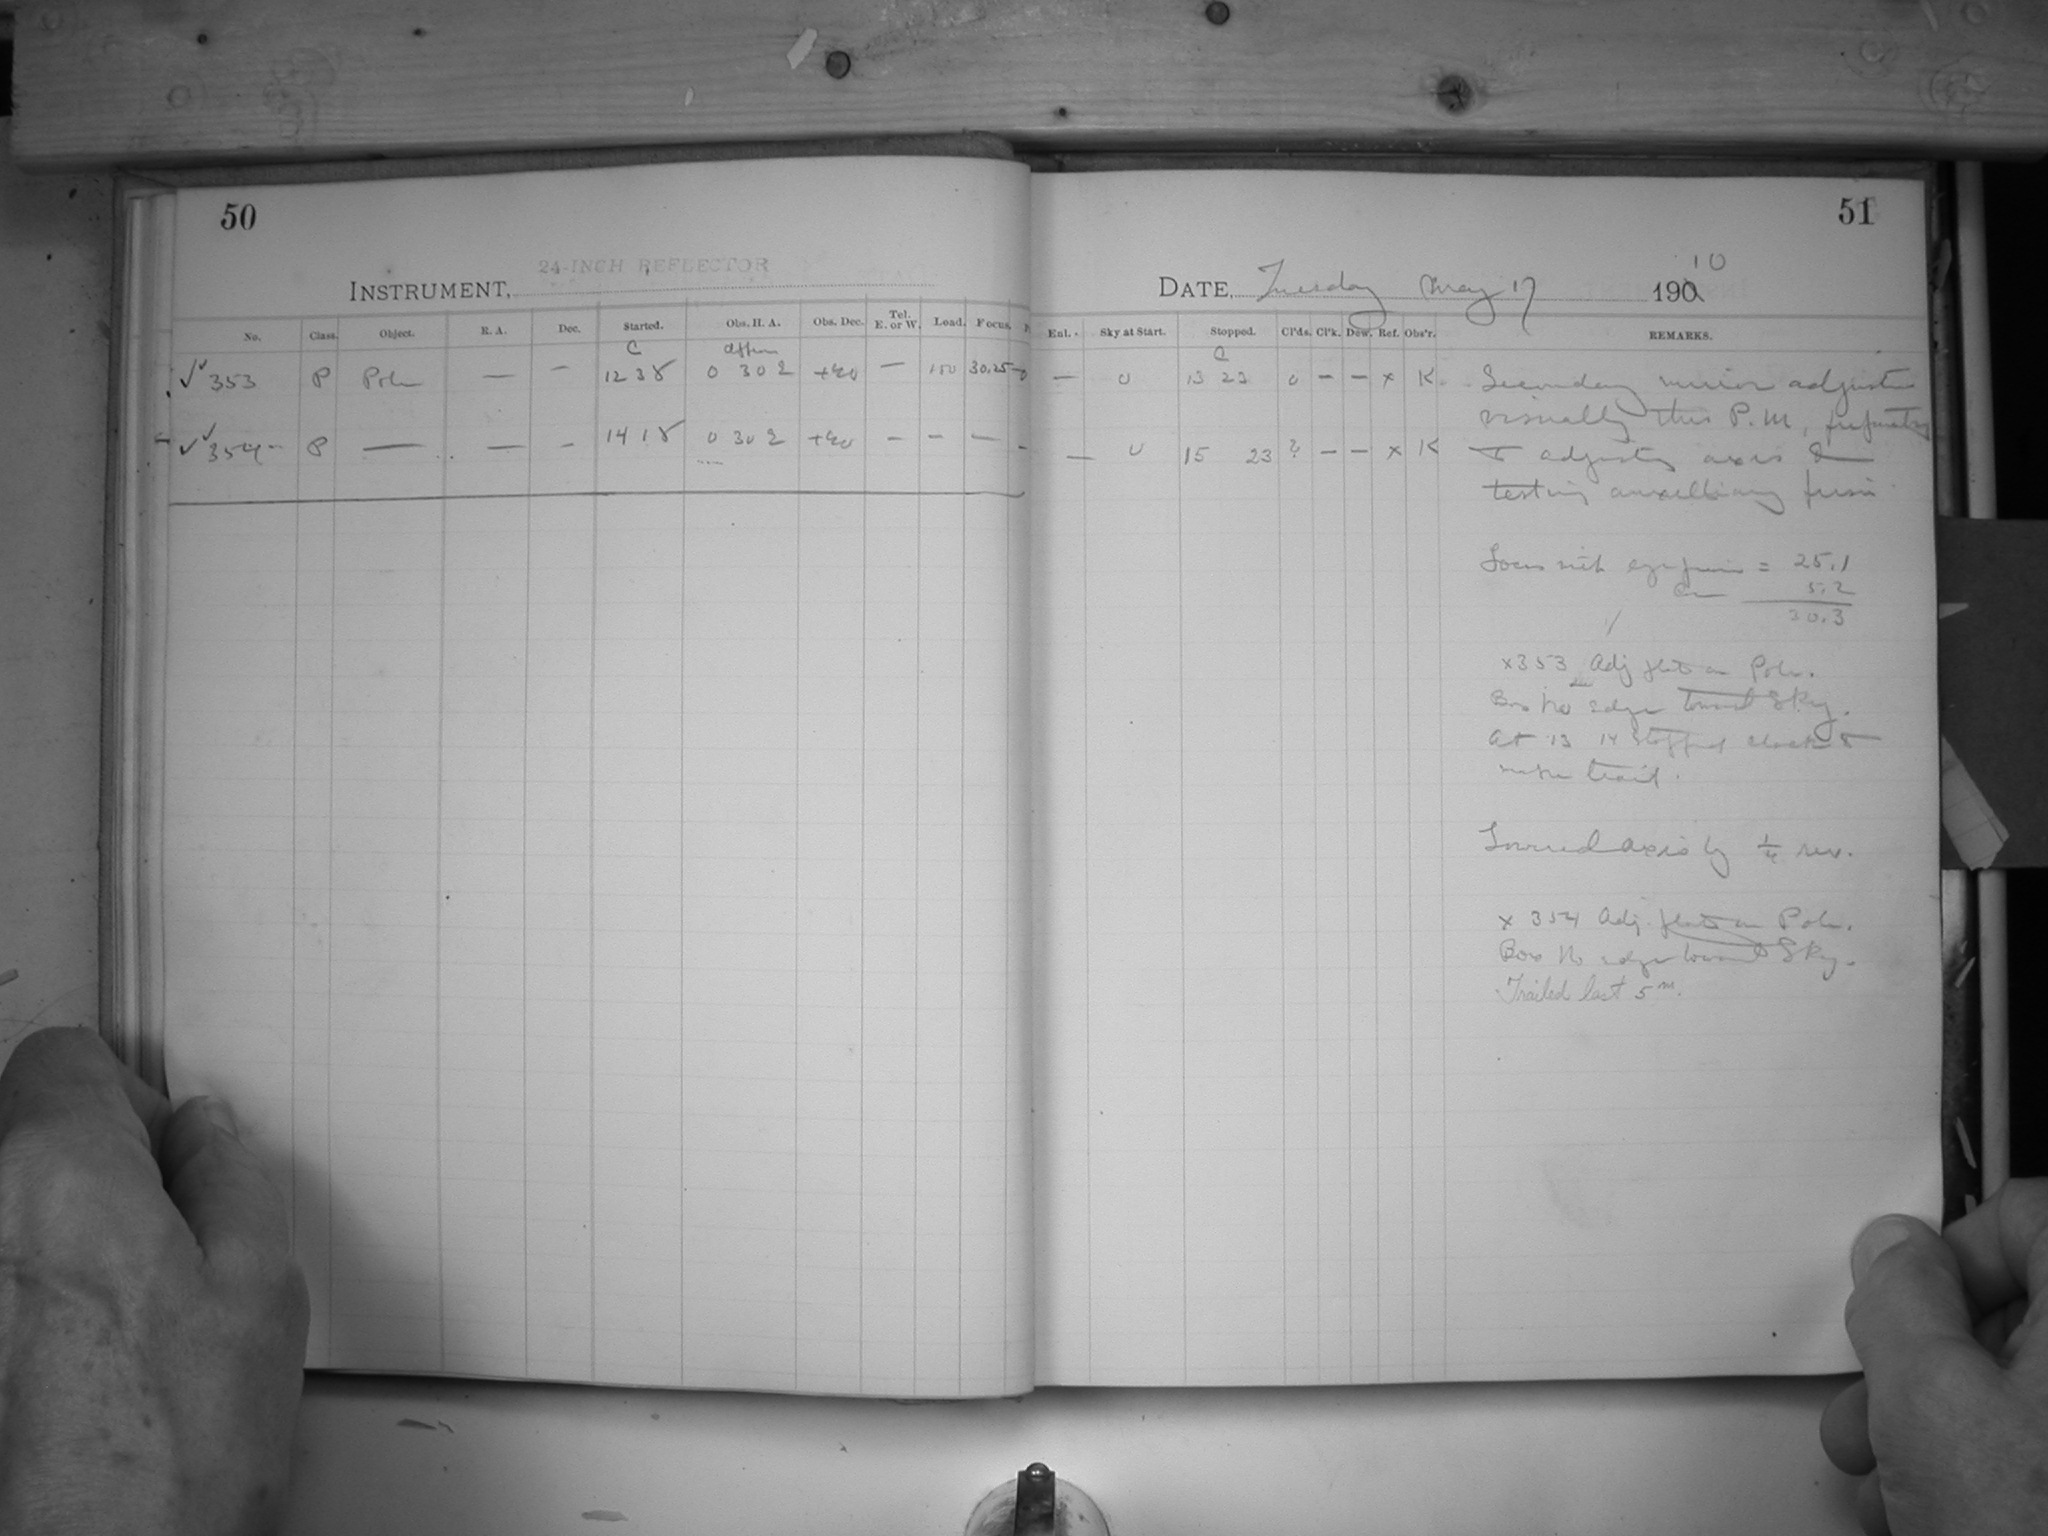 50
24-INCH REFLECTOR
INSTRUMENT,
No. Class. Object. R. A. Dec. Started. Obs. H. A. Obs. Dec. Tel. E. or W. Load. Focus.
C
✓✓ 353 P Pole — — 12 38 0 30 2 +90 — 100 30.25
✓✓ 354 P — — — 14 18 0 30 2 +90 — — — —
51
DATE, Tuesday May 17 1910
Enl. Sky at Start. Stopped. Cl'ds. Cl'k. Dew. Ref. Obs'r. REMARKS.
C
— 0 13 23 0 — — x K.
— 0 15 23 2 — — x K
Secondary mirror adjusted
visually this P.M., preparatory
to adjusting axis &
testing auxilliary
Focus with eyepiece = 25.1
5.2
30.3
x353 Adj plate on Pole.
Box No edge toward Sky.
At 13 14 stopped clock &
trail.
Lowered axis by 1/4 rev.
x 354 Adj. plate on Pole.
Box No edge toward Sky.
Trailed last 5m.